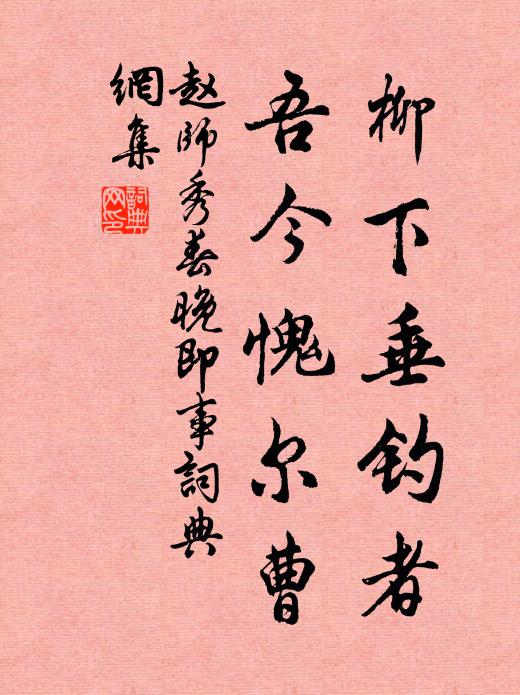 柳下垂钓者
吾今愧尔曹
赵师秀春晚即事詞典
網集
詞典
网印